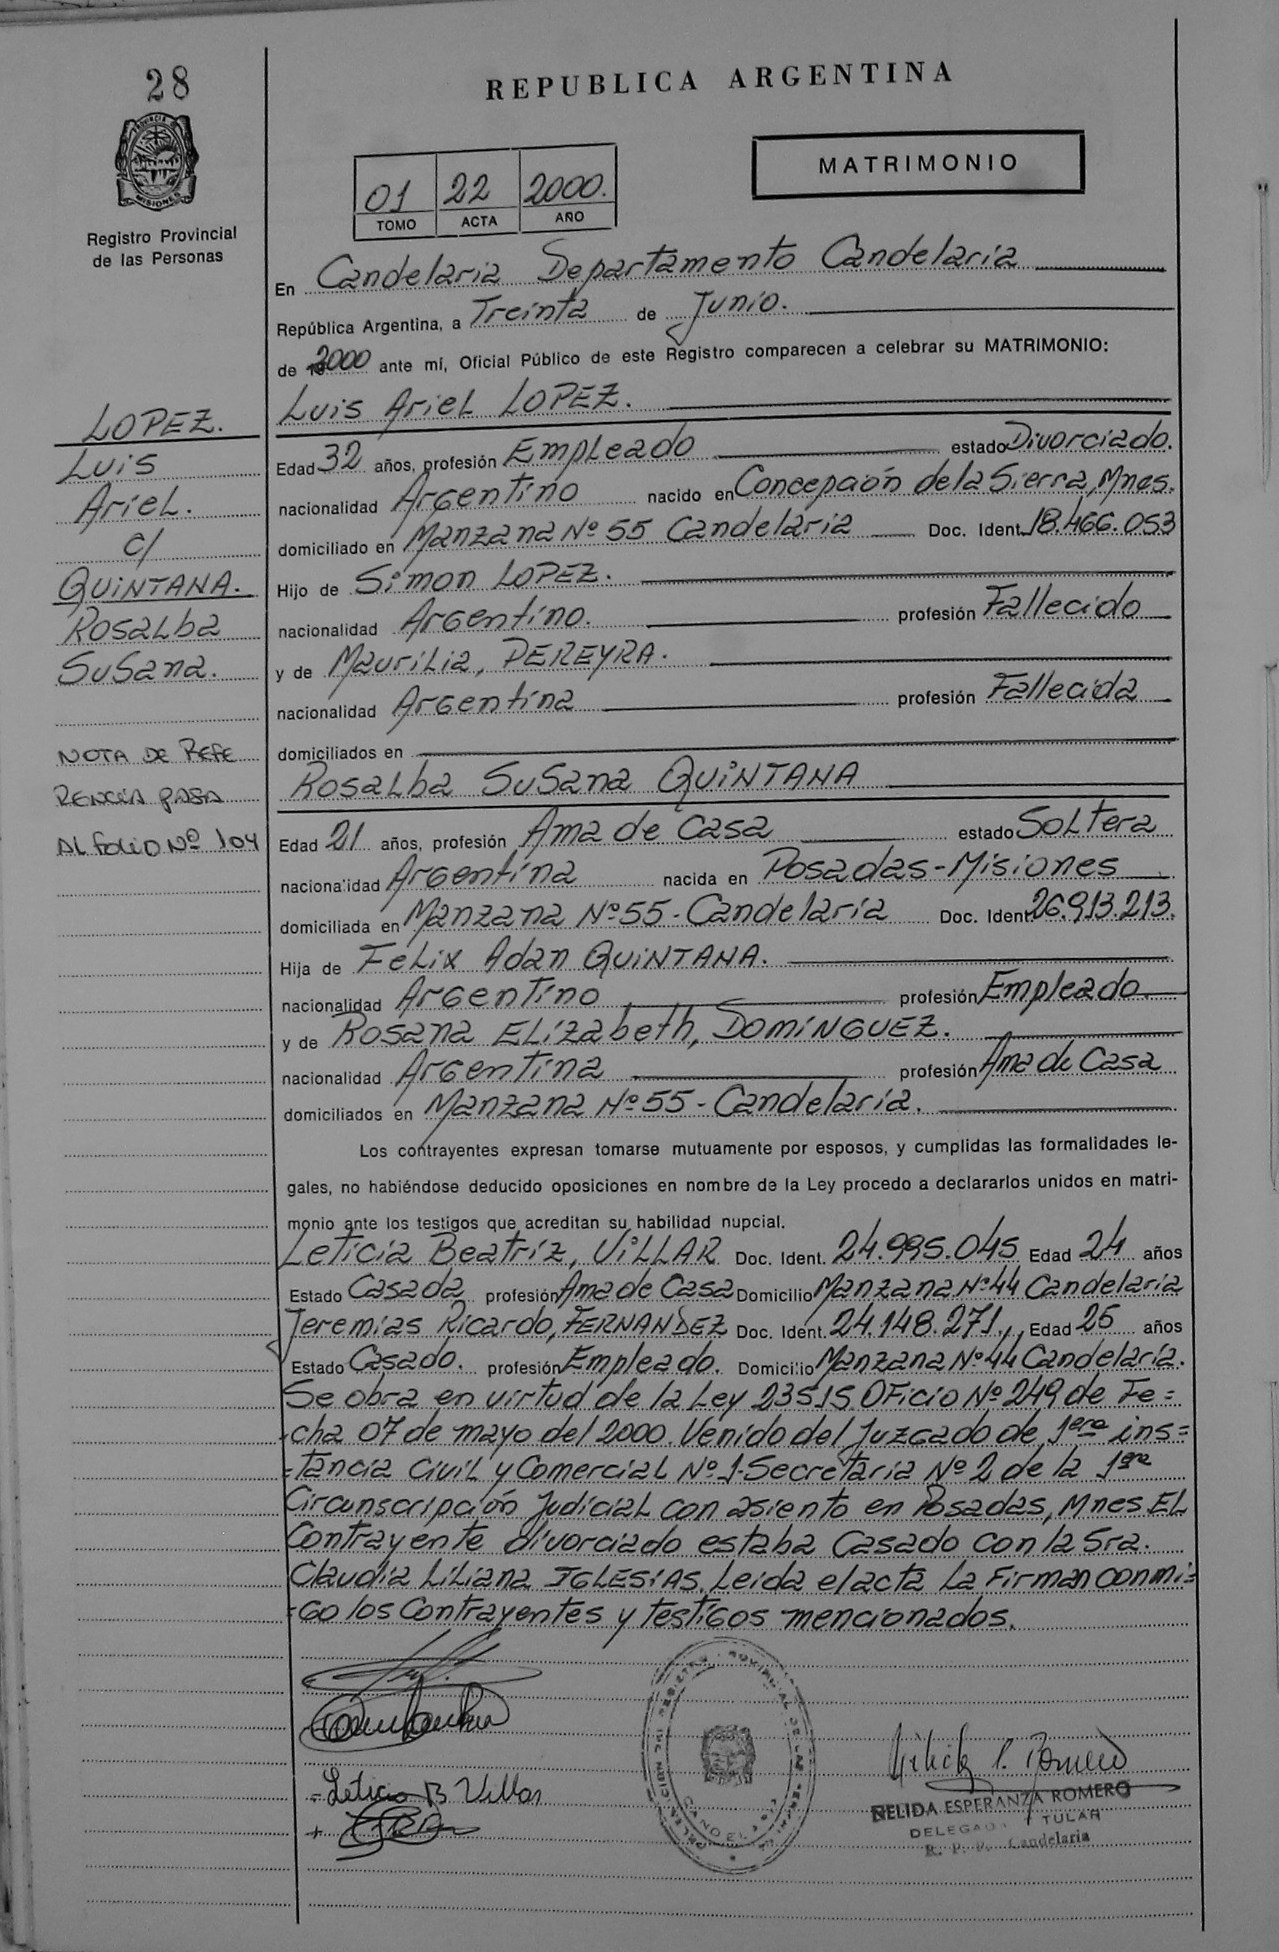 28
REPUBLICA ARGENTINA
PROVINCIA
MISIONES
Registro Provincial
de las Personas
01 22 2000.
TOMO ACTA AÑO
MATRIMONIO
En Candelaria Departamento Candelaria
República Argentina, a Treinta de Junio.
de 2000 ante mí, Oficial Público de este Registro comparecen a celebrar su MATRIMONIO:
Luis Ariel LOPEZ.
LOPEZ.
Luis
Ariel.
c/
QUiNTANA.
Rosalba
Susana.
NOTA DE REFE
RENCIA PASA
AL FOLIO Nº 104
Edad 32 años, profesión Empleado estado Divorciado.
nacionalidad Argentino nacido en Concepción de la Sierra, Mnes.
domiciliado en Manzana Nº 55 Candelaria Doc. Ident. 18.466.053
Hijo de Simon LOPEZ.
nacionalidad Argentino. profesión Fallecido
y de Maurilia, PEREYRA.
nacionalidad Argentina profesión Fallecida
domiciliados en
Rosalba Susana QUiNTANA
Edad 21 años, profesión Ama de Casa estado Soltera
nacionalidad Argentina nacida en Posadas-Misiones
domiciliada en Manzana Nº 55-Candelaria Doc. Ident. 26.913.213.
Hija de Felix Adan QUiNTANA.
nacionalidad Argentino profesión Empleado
y de Rosana Elizabeth, DOMiNGUEZ.
nacionalidad Argentina profesión Ama de Casa
domiciliados en Manzana Nº 55-Candelaria.
Los contrayentes expresan tomarse mutuamente por esposos, y cumplidas las formalidades le-
gales, no habiéndose deducido oposiciones en nombre de la Ley procedo a declararlos unidos en matri-
monio ante los testigos que acreditan su habilidad nupcial.
Leticia Beatriz, ViLLAR Doc. Ident. 24.995.045 Edad 24 años
Estado Casada profesión Ama de Casa Domicilio Manzana Nº 44 Candelaria
Jeremias Ricardo, FERNANDEZ Doc. Ident. 24.148.271., Edad 25 años
Estado Casado. profesión Empleado. Domicilio Manzana Nº 44 Candelaria.
Se obra en virtud de la Ley 23515 Oficio Nº 249 de Fe=
-cha 07 de mayo del 2000. Venido del Juzgado de 1era ins=
=tancia Civil y Comercial Nº 1-Secretaria Nº 2 de la 1era
Circunscripción Judicial con asiento en Posadas, Mnes El
Contrayente divorciado estaba Casado con la Sra.
Claudia Liliana IGLESiAS. Leida el acta la Firman conmi=
=go los Contrayentes y testigos mencionados.
Leticia B Villar
NELIDA ESPERANZA ROMERO
DELEGADA TITULAR
R. P. P. Candelaria